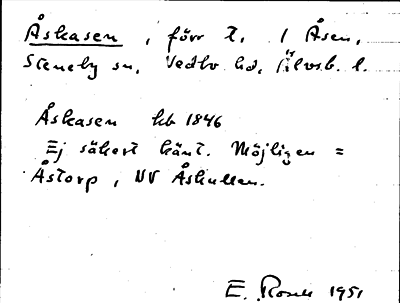 Åskasen, förr t. 1 Åsen,
Steneby sn, Vedbo hd, Älvsb. l.
Åskasen hb 1846
Ej säkert känt. Möjligen =
Åstorp, NV Åskullen.
E. Rosell 1951